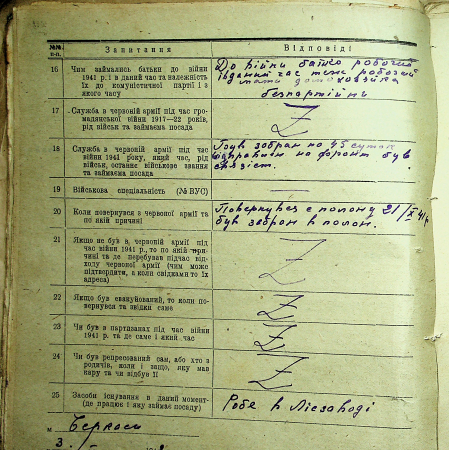 №№ п.п. Запитання Відповіді
16 Чим займались батьки до війни До війни батько робочий
1941 р. і в даний час та належність і в даний час теж робочий
їх до комуністичної партії і з мати домохозяйка
якого часу безпартійни
17 Служба в червоній армії під час гро- Z
мадянської війни 1917—22 років,
рід військ та займаєма посада
18 Служба в червоній армії під час Був зобран на 45 суток
війни 1941 року, який час, рід відправлен на фронт був
військ, останнє військове звання связіст.
та займаєма посада
19 Військова спеціальність (№ ВУС) —
20 Коли повернувся з червоної армії та Повернувся с полону 21/X 41 р.
по якій причині був зобран в полон.
21 Якщо не був в червоній армії під Z
час війни 1941 р., то по якій при-
чині та де перебував підчас від-
ходу червоної армії (чим може
підтвердити, а коли свідками то їх
адреса)
22 Якщо був евакуйований, то коли по- Z
вернувся та звідки саме
23 Чи був в партизанах під час війни Z
1941 р. та де саме і який час
24 Чи був репресований сам, або хто з Z
родичів, коли і защо, яку мав
кару та чи відбув її
25 Засоби існування в даний момент- Робе в Лісзаводі
(де працює і яку займає посаду)
м Черкаси
3.